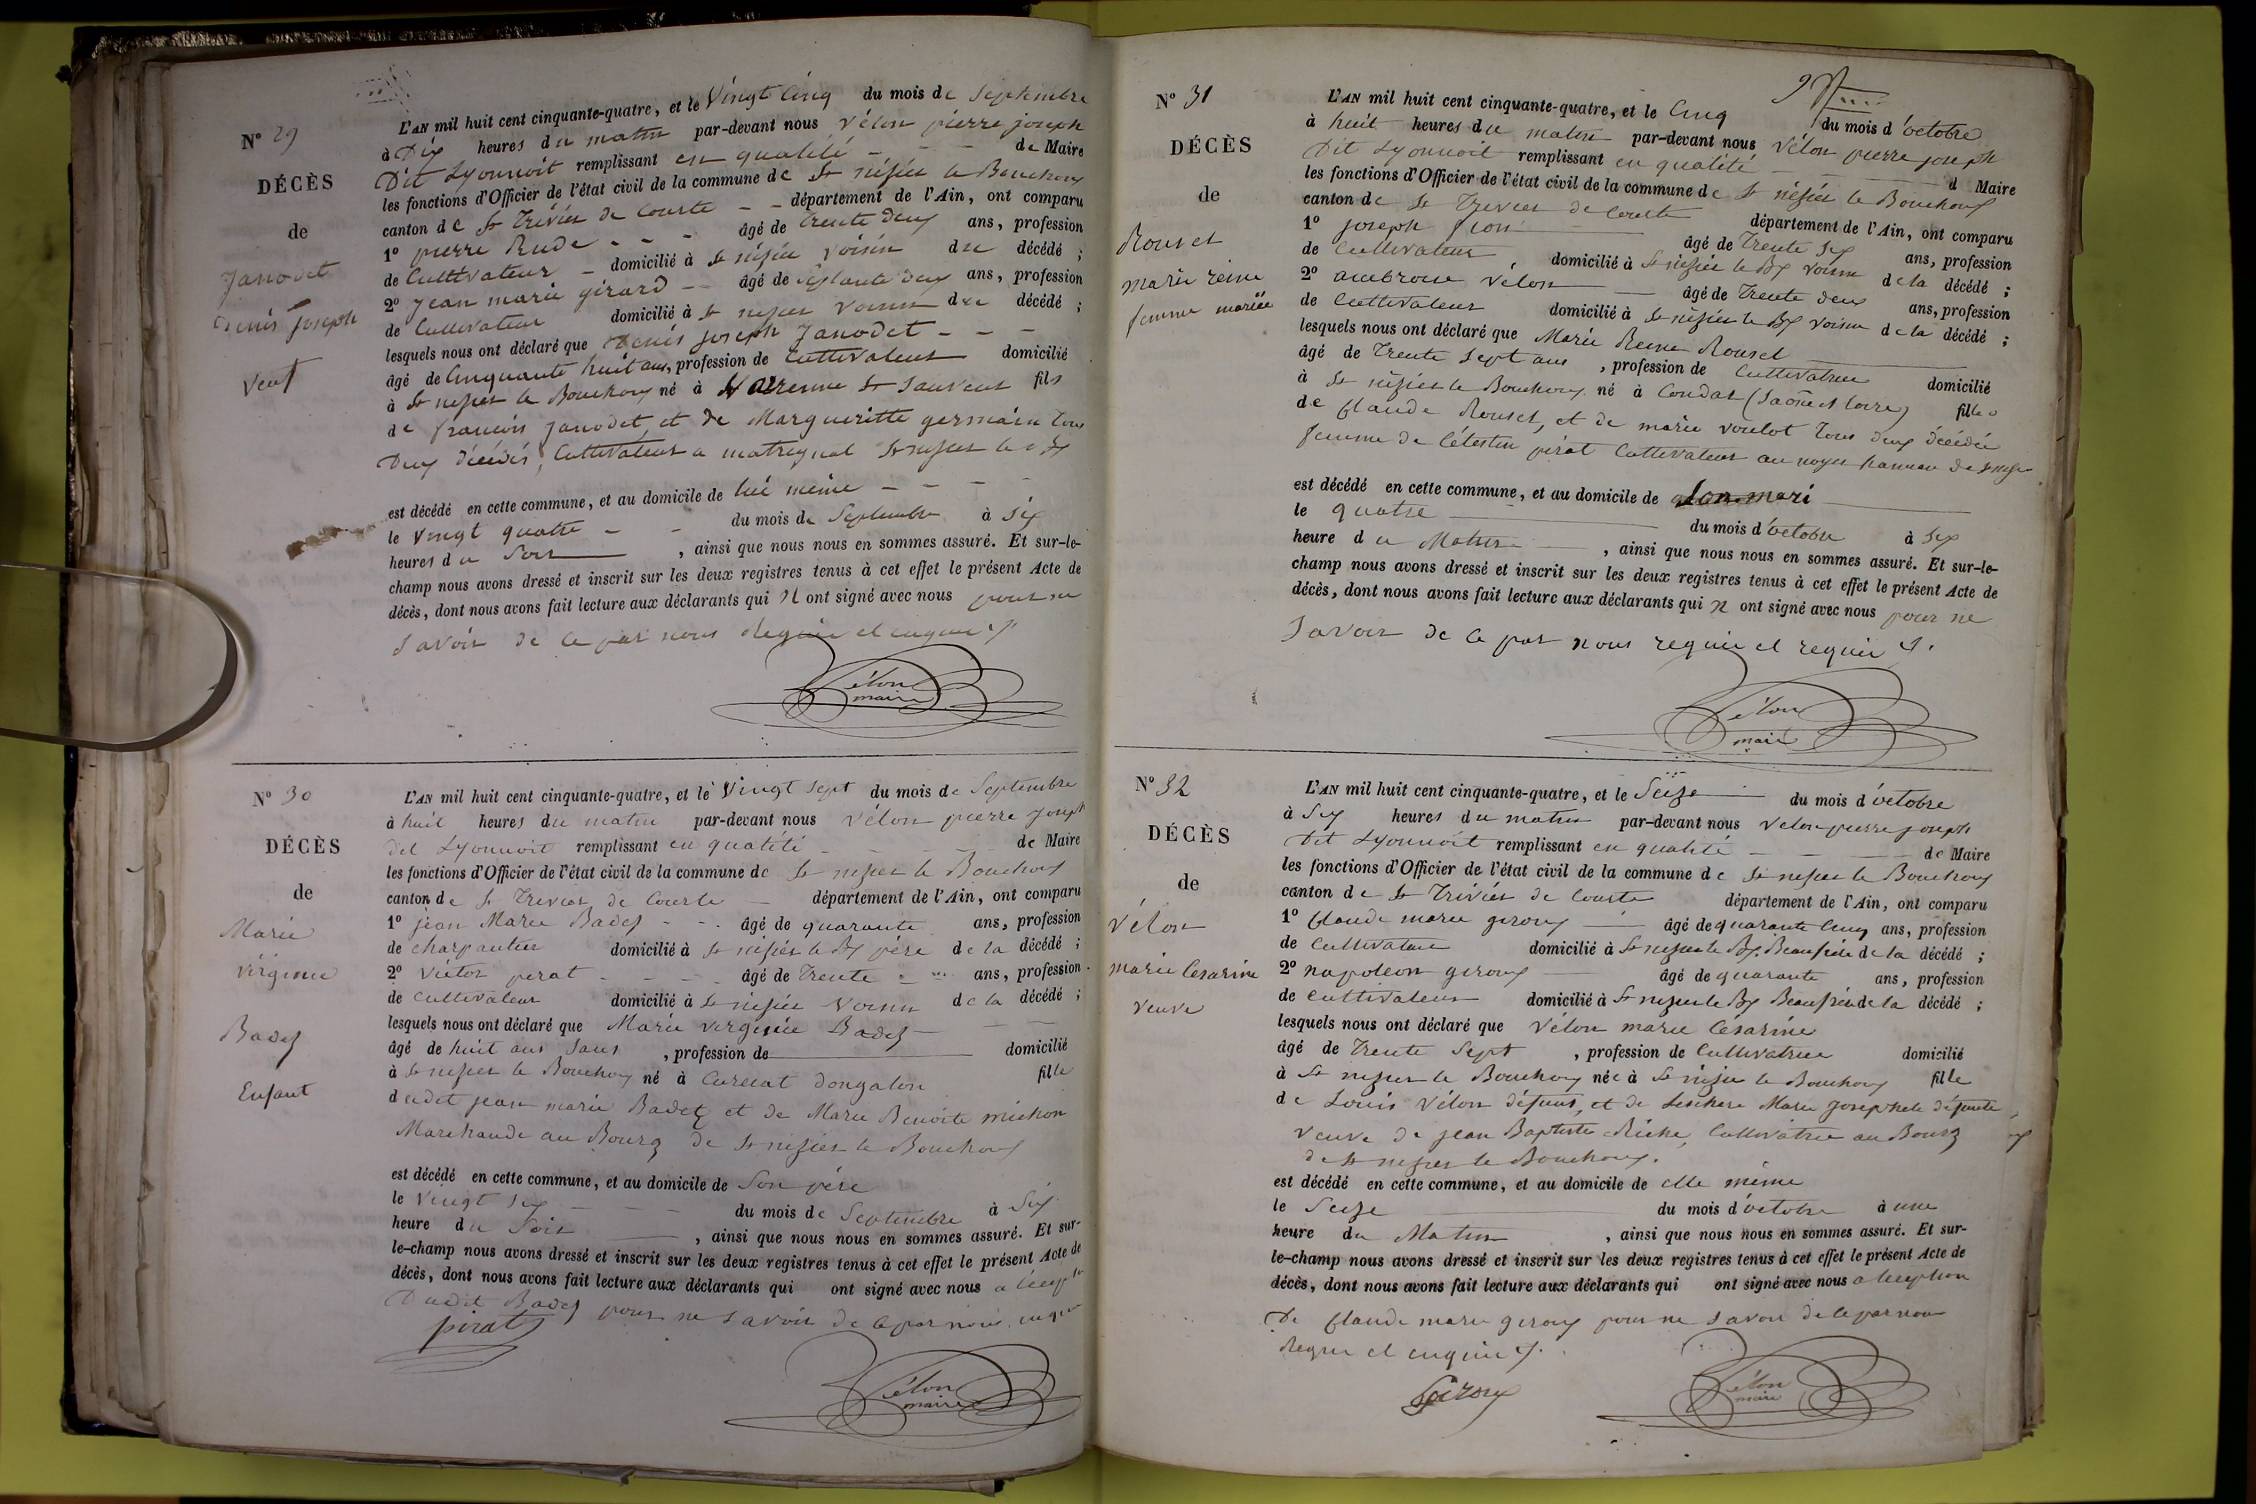 N° 29
DÉCÈS
de
Janodet
Denis Joseph
Veuf
L'AN mil huit cent cinquante-quatre, et le Vingt Cinq du mois de Septembre
à Dix heures du matin par-devant nous Vélon pierre joseph
Dit Lyonnoit remplissant en qualité - - - de Maire
les fonctions d'Officier de l'état civil de la commune de St nisier le Bouchoux
canton de St Trivier de Courte - - département de l'Ain, ont comparu
1° pierre Rude - - - âgé de trente deux ans, profession
de Cultivateur - domicilié à St nisier voisin du décédé ;
2° jean marie girard - - âgé de soixante deux ans, profession
de Cultivateur domicilié à St nisier voisin du décédé ;
lesquels nous ont déclaré que Denis joseph Janodet - - -
âgé de Cinquante huit ans, profession de Cultivateur domicilié
à St nisier le Bouchoux né à Varenne St Sauveur fils
de françois janodet, et de Margueritte germain tous
Deux décédés, Cultivateur a St nisier le Bx
est décédé en cette commune, et au domicile de lui même - - - -
le Vingt quatre - - du mois de Septembre à Six
heures du Soir , ainsi que nous nous en sommes assuré. Et sur-le-
champ nous avons dressé et inscrit sur les deux registres tenus à cet effet le présent Acte de
décès, dont nous avons fait lecture aux déclarants qui n ont signé avec nous pour ne
Savoir de ce par nous Requis et enquis
Vélon
maire
N° 30
DÉCÈS
de
Marie
Virginie
Badez
Enfant
L'AN mil huit cent cinquante-quatre, et le Vingt Sept du mois de Septembre
à huit heures du matin par-devant nous Vélon pierre joseph
dit Lyonnoit remplissant en qualité - - - de Maire
les fonctions d'Officier de l'état civil de la commune de St nisier le Bouchoux
canton de St Trivier de Courte - département de l'Ain, ont comparu
1° jean Marie Badez - - âgé de quarante ans, profession
de charpantier domicilié à St nisier le Bx père de la décédé ;
2° Victor perat - - - âgé de Trente - ans, profession
de Cultivateur domicilié à St nisier Voisin de la décédé ;
lesquels nous ont déclaré que Marie Virginie Badez - - -
âgé de huit ans Sans , profession de domicilié
à St nisier le Bouchoux né à Curciat dongalon fille
dudit jean marie Badez et de Marie Benoite michon
Marchande au Bourg de St nisier le Bouchoux
est décédé en cette commune, et au domicile de Son père
le Vingt Six - - - du mois de Septembre à Six
heure du Soir , ainsi que nous nous en sommes assuré. Et sur-
le-champ nous avons dressé et inscrit sur les deux registres tenus à cet effet le présent Acte de
décès, dont nous avons fait lecture aux déclarants qui ont signé avec nous
Dudit Badez pour ne Savoir de ce par nous
pirat
Vélon
maire
N° 31
DÉCÈS
de
Rouset
marie reine
femme mariée
L'AN mil huit cent cinquante-quatre, et le Cinq du mois d'octobre
à huit heures du matin par-devant nous Vélon pierre joseph
Dit Lyonnoit remplissant en qualité - - d Maire
les fonctions d'Officier de l'état civil de la commune de St nisier le Bouchoux
canton de St Trivier de Courte département de l'Ain, ont comparu
1° joseph âgé de Trente Six ans, profession
de Cultivateur , domicilié à St nisier le Bx voisin de la décédé ;
2° ambroise Vélon âgé de Trente deux ans, profession
de Cultivateur domicilié à St nisier le Bx voisin de la décédé ;
lesquels nous ont déclaré que Marie Reine Rouset
âgé de Trente Sept ans , profession de Cultivatrice domicilié
à St nisier le Bouchoux né à Condat (Saône et loire) fille
de Claude Rouset, et de marie voulot tous deux décédés
femme de Célestin pérat Cultivateur au noyer hameau de St nisier
est décédé en cette commune, et au domicile de Son mari
le quatre du mois d'octobre à Six
heure du Matin , ainsi que nous nous en sommes assuré. Et sur-le-
champ nous avons dressé et inscrit sur les deux registres tenus à cet effet le présent Acte de
décès, dont nous avons fait lecture aux déclarants qui n ont signé avec nous pour ne
Savoir de ce par nous requis et requis
Vélon
maire
N° 32
DÉCÈS
de
Vélon
marie Cesarine
veuve
L'AN mil huit cent cinquante-quatre, et le Seize du mois d'octobre
à Six heures du matin par-devant nous Velon pierre joseph
Dit Lyonnoit remplissant en qualité - - - de Maire
les fonctions d'Officier de l'état civil de la commune de St nisier le Bouchoux
canton de St Trivier de Courte département de l'Ain, ont comparu
1° Claude marie giroux âgé de quarante Cinq ans, profession
de Cultivateur domicilié à St nisier le Bx Beaufrère de la décédé ;
2° napoléon giroux âgé de quarante ans, profession
de Cultivateur domicilié à St nisier le Bx Beaufrère de la décédé ;
lesquels nous ont déclaré que Vélon marie Césarine
âgé de Trente Sept , profession de Cultivatrice domicilié
à St nisier le Bouchoux née à St nisier le Bouchoux fille
de Louis Vélon défunt, et de Marie Josephte défunte
Veuve de jean Baptiste Riche, Cultivatrice au Bourg
de St nisier le Bouchoux.
est décédé en cette commune, et au domicile de elle même
le Seize du mois d'octobre à une
heure du Matin , ainsi que nous nous en sommes assuré. Et sur-
le-champ nous avons dressé et inscrit sur les deux registres tenus à cet effet le présent Acte de
décès, dont nous avons fait lecture aux déclarants qui ont signé avec nous a lexception
De Claude marie giroux pour ne Savoir de ce par nous
Requis et enquis
Giroux
Vélon
maire